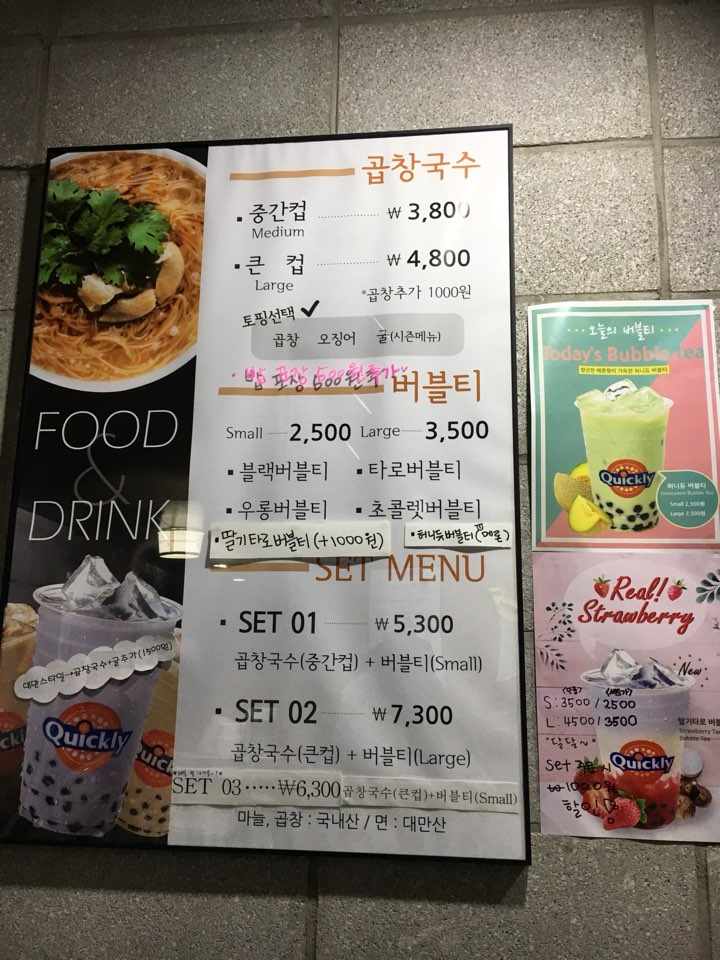 곱창국수
▪ 중간컵 ₩ 3,800
Medium
▪ 큰 컵 ₩ 4,800
Large
*곱창추가 1000원
토핑선택 ✓
곱창 오징어 굴(시즌메뉴)
· 밥 포장 500원추가
버블티
Small 2,500 Large 3,500
▪ 블랙버블티 ▪ 타로버블티
▪ 우롱버블티 ▪ 초콜렛버블티
• 딸기타로버블티 (+1000원) • 허니듀버블티(메론)
SET MENU
▪ SET 01 ₩ 5,300
곱창국수(중간컵) + 버블티(Small)
▪ SET 02 ₩ 7,300
곱창국수(큰컵) + 버블티(Large)
SET 03 ····· ₩6,300 곱창국수(큰컵)+버블티(Small)
마늘, 곱창 : 국내산 / 면 : 대만산
FOOD
&
DRINK
대만스타일→곱창국수+굴추가(1500원)
Quickly
Quickly
오늘의 버블티
Today's Bubble tea
향긋한 메론향이 가득한 허니듀 버블티
Quickly
허니듀 버블티
Honeydew Bubble Tea
Small 2,500원
Large 3,500원
Real!
Strawberry
New
S: 3500 / 2500
L: 4500 / 3500
"달달~"
Set
₩1000원
할인
딸기타로 버블
Strawberry Taro
Bubble Tea
Quickly